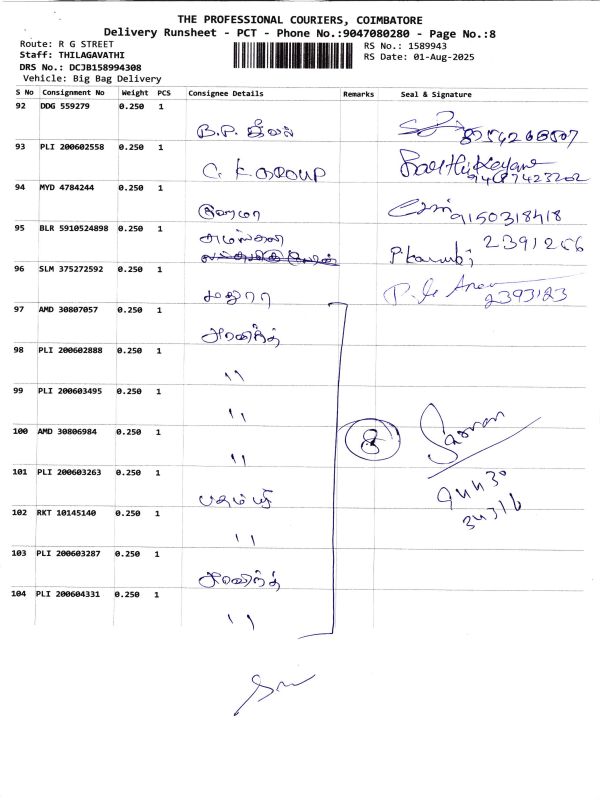 THE PROFESSIONAL COURIERS, COIMBATORE
Delivery Runsheet - PCT - Phone No.:9047080280 - Page No.:8
Route: R G STREET
RS No.: 1589943
Staff: THILAGAVATHI
RS Date: 01-Aug-2025
DRS No.: DCJB158994308
Vehicle: Big Bag Delivery
S No Consignment No Weight PCS Consignee Details Remarks Seal & Signature
92 DDG 559279 0.250 1
B.P.
93 PLI 200602558 0.250 1
C. K GROUP
94 MYD 4784244 0.250 1
9150318418
95 BLR 5910524898 0.250 1
2391256
96 SLM 375272592 0.250 1
2393123
97 AMD 30807057 0.250 1
அரவிந்த்
98 PLI 200602888 0.250 1
"
99 PLI 200603495 0.250 1
"
100 AMD 30806984 0.250 1
" 8
101 PLI 200603263 0.250 1
102 RKT 10145140 0.250 1
"
103 PLI 200603287 0.250 1
அரவிந்த்
104 PLI 200604331 0.250 1
"